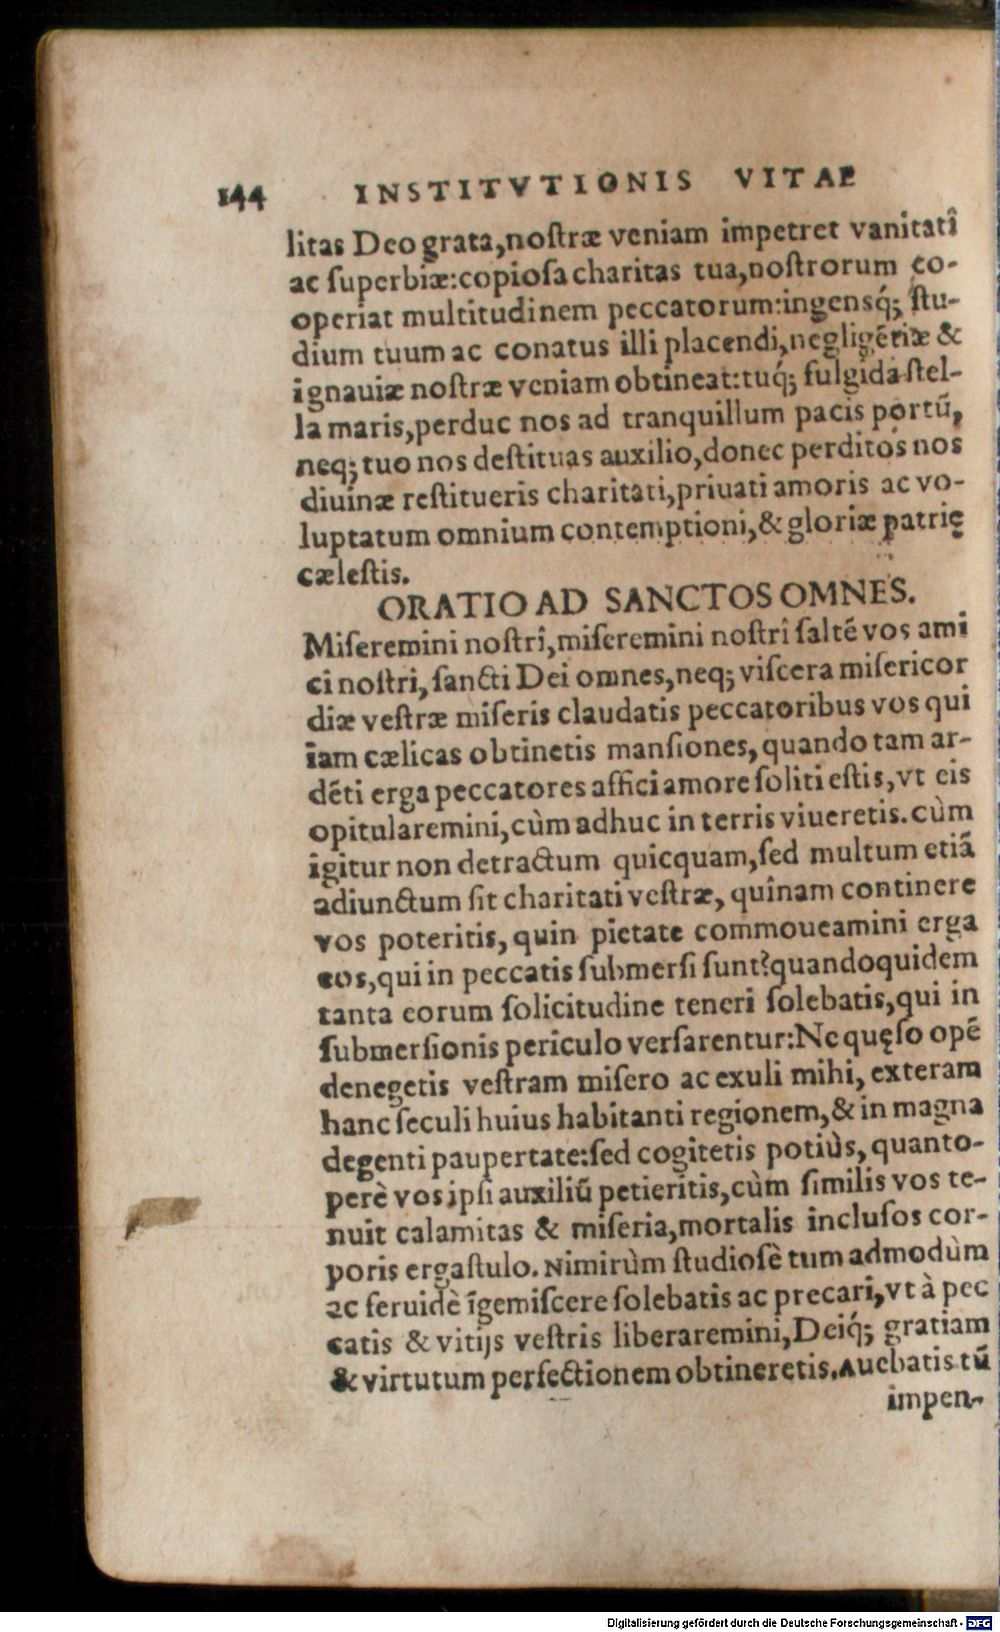 144 INSTITVTIONIS VITAE
litas Deo grata,noſtræ veniam impetret vanitatî
ac ſuperbiæ:copioſa charitas tua,noſtrorum co-
operiat multitudinem peccatorum:ingensq́; ſtu-
dium tuum ac conatus illi placendi,negligẽtiæ &
ignauiæ noſtræ veniam obtineat:tuq́; fulgida ſtel-
la maris,perduc nos ad tranquillum pacis portũ,
neq; tuo nos deſtituas auxilio,donec perditos nos
diuinæ reſtitueris charitati,priuati amoris ac vo-
luptatum omnium contemptioni,& gloriæ patrię
cæleſtis.
ORATIO AD SANCTOS OMNES.
Miſeremini noſtrî,miſeremini noſtrî ſaltẽ vos ami
ci noſtri, ſancti Dei omnes,neq; viſcera miſericor
diæ veſtræ miſeris claudatis peccatoribus vos qui
iam cælicas obtinetis manſiones, quando tam ar-
dẽti erga peccatores affici amore ſoliti eſtis,vt eis
opitularemini,cùm adhuc in terris viueretis.cùm
igitur non detractum quicquam,ſed multum etiã
adiunctum ſit charitati veſtræ, quînam continere
vos poteritis, quin pietate commoueamini erga
eos,qui in peccatis ſubmerſi ſunt?quandoquidem
tanta eorum ſolicitudine teneri ſolebatis,qui in
ſubmerſionis periculo verſarentur:Ne quęſo opẽ
denegetis veſtram miſero ac exuli mihi, exteram
hanc ſeculi huius habitanti regionem,& in magna
degenti paupertate:ſed cogitetis potiùs, quanto-
perè vos ipſi auxiliũ petieritis,cùm ſimilis vos te-
nuit calamitas & miſeria,mortalis incluſos cor-
poris ergaſtulo. Nimirùm ſtudioſè tum admodùm
ac feruidè īgemiſcere ſolebatis ac precari,vt à pec
catis & vitijs veſtris liberaremini,Deiq́; gratiam
& virtutum perfectionem obtineretis.Auebatis tũ
impen-
Digitalisierung gefördert durch die Deutsche Forschungsgemeinschaft - DFG